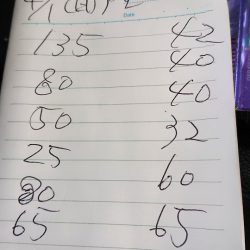 Date
135 42
80 40
50 40
25 32
80 60
65 65